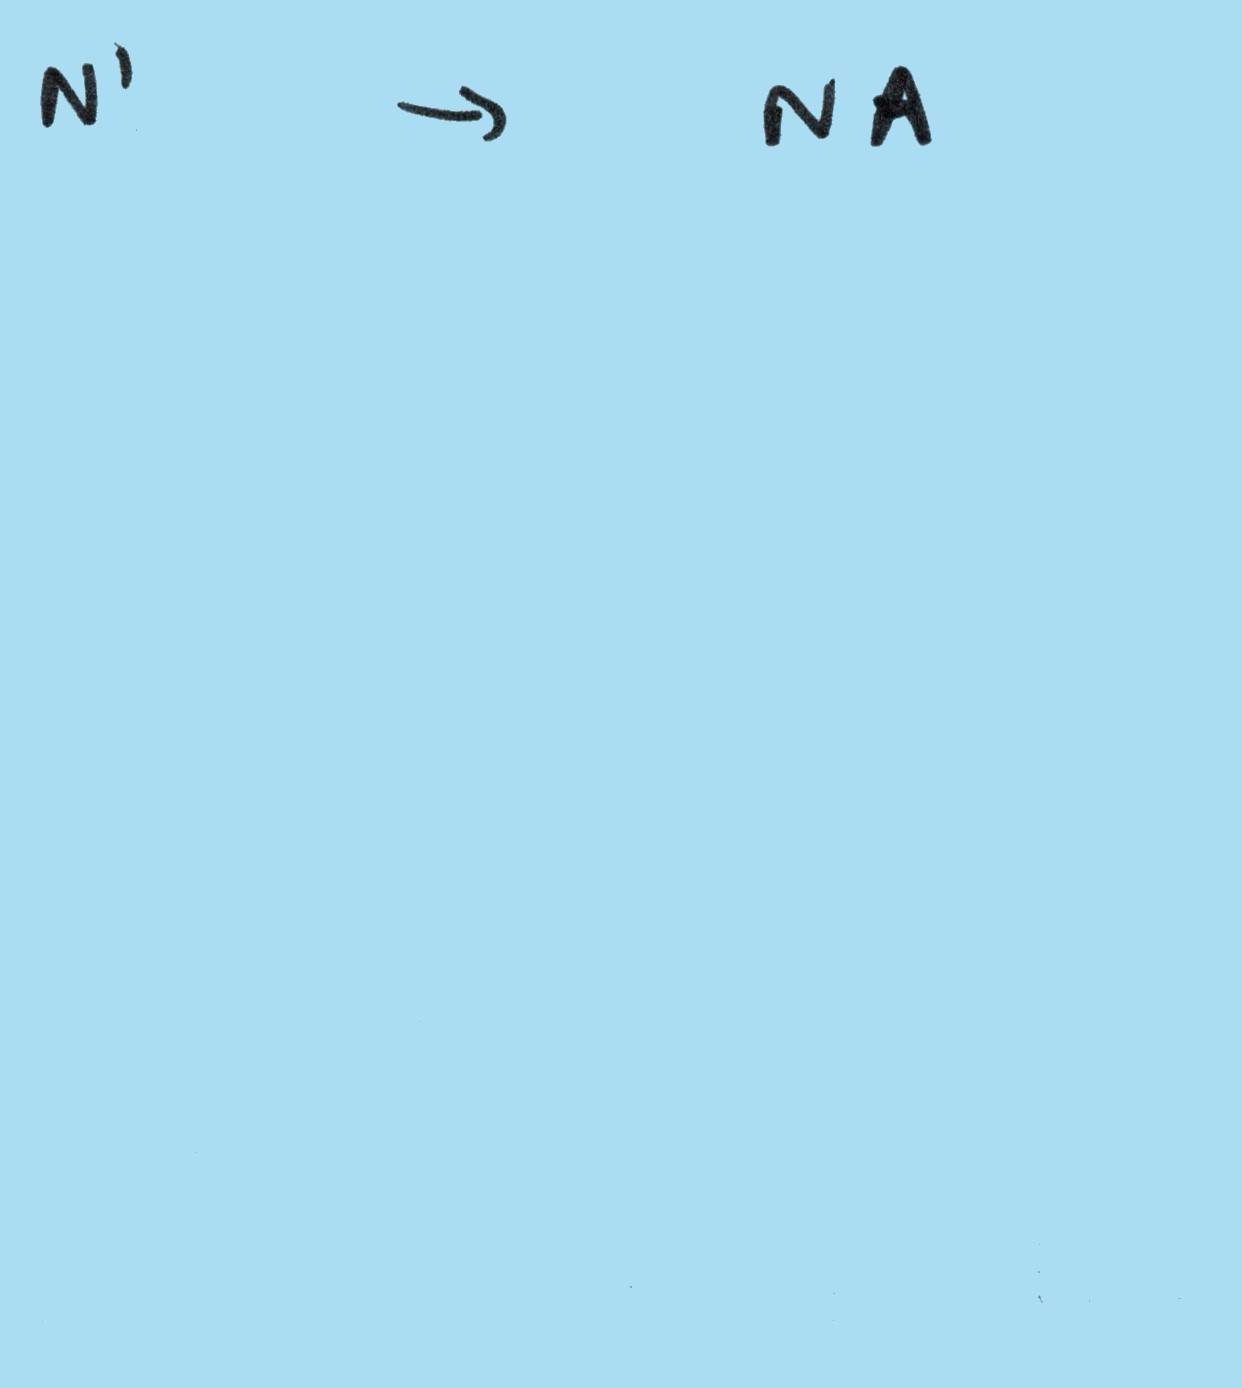 N' → NA